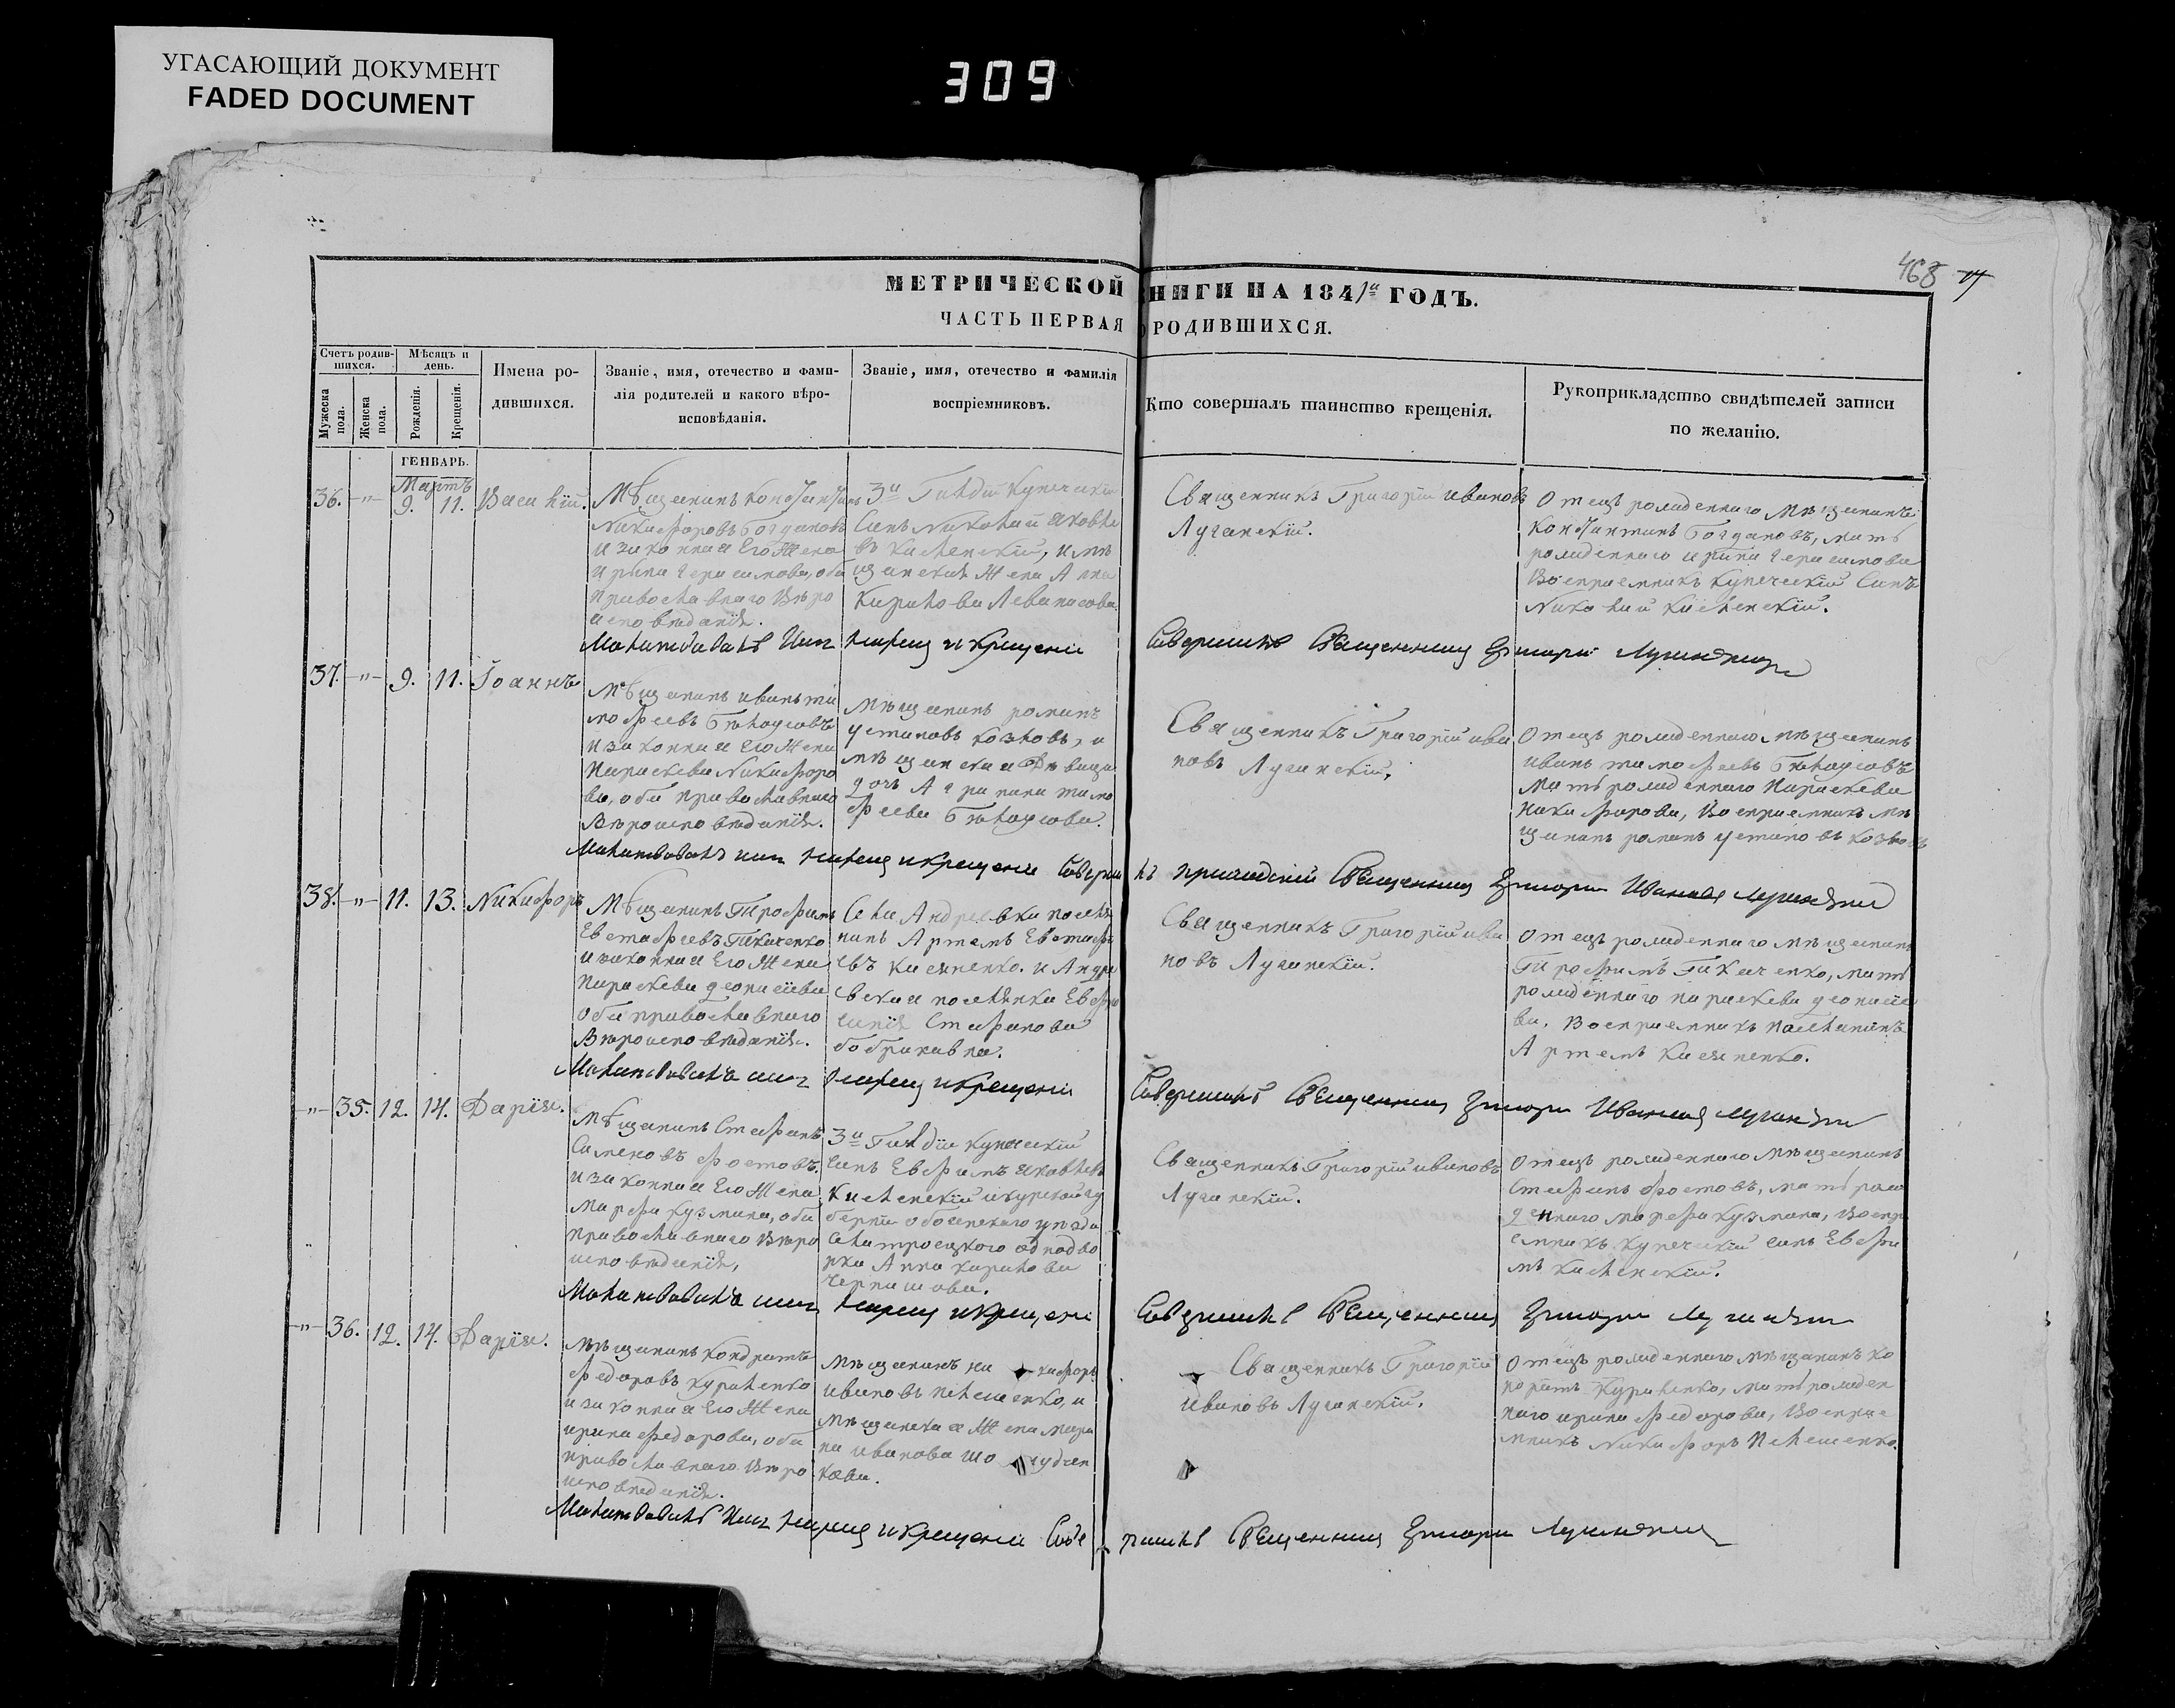 УГАСАЮЩИЙ ДОКУМЕНТ
FADED DOCUMENT
309
468
МЕТРИЧЕСКОЙ КНИГИ НА 1841й ГОДЪ.
ЧАСТЬ ПЕРВАЯ О РОДИВШИХСЯ.
Счетъ родив-
шихся.
Мужеска
пола.
Женска
пола.
Мѣсяцъ и
день.
Рожденія.
Крещенія.
Имена ро-
дившихся.
Званіе, имя, отечество и фами-
лія родителей и какого вѣро-
исповѣданія.
Званіе, имя, отечество и фамилія
воспріемниковъ.
Кто совершалъ таинство крещенія.
Рукоприкладство свидѣтелей записи
по желанію.
ГЕНВАРЬ.
Мартъ
36. -"- 9. 11. Василій.
Мѣщанинъ Константинъ
Никифоровъ Богдановъ
и законная Его Жена
ирина герасимова, оба
православнаго Вѣро
исповѣданія.
3й Гилдіи Купеческій
Синъ Николай яковле
въ кисленскій, и мѣ
щанская Жена Анна
Кирилова
Священникъ Григорій ивановъ
Луганскій.
Отецъ рожденнаго Мѣщанинъ
Константинъ Богдановъ, мать
рожденнаго ирина герасимова
Воспріемникъ Купеческій Синъ
Николай кисленскій.
Молитвовалъ имя нарещи и крещеніе Совершилъ Священникъ Григорій Луганскій
37. -"- 9. 11. Іоаннъ
Мѣщанинъ иванъ ти
мофеевъ Бѣлоусовъ
и законная Его Жена
Параскева Никифоро
ва, оба православнаго
Вѣроисповѣданія.
мѣщанинъ романъ
устиновъ козловъ, и
мѣщанская Дѣвица
дочь Агрипина тимо
феева Бѣлоусова.
Священникъ Григорій ива
новъ Луганскій.
Отецъ рожденнаго мѣщанинъ
иванъ тимофеевъ Бѣлоусовъ
Мать рожденнаго Параскева
никифорова, Воспріемникъ мѣ
щанинъ романъ устиновъ козловъ
Молитвовалъ имя нарещи и крещеніе Совершилъ приходскій Священникъ Григорій Ивановъ Луганскій
38. -"- 11. 13. Никифоръ
Мѣщанинъ Трофимъ
Евстафіевъ Ткаченко
и законная Его Жена
Параскева
оба православнаго
Вѣроисповѣданія.
Села Андреевки поселя
нинъ Артемъ Евстафі
евъ Кисленко. и Андре
евская поселянка Евфро
синія Стефанова
Священникъ Григорій ива
новъ Луганскій.
Отецъ рожденнаго мѣщанинъ
Трофимъ Ткаченко, мать
рожденнаго параскева
ва. Воспріемникъ поселянинъ
Артемъ
Молитвовалъ имя нарещи и крещеніе Совершилъ Священникъ Григорій Ивановъ Луганскій
-"- 35. 12. 14. Дарія.
Мѣщанинъ Стефанъ
Сименовъ фостовъ.
и законная Его Жена
Марфа кузмина, оба
православнаго Вѣро
исповѣданія,
3й Гилдіи Купеческій
синъ Евфимъ яковлевъ
Кисленскій и курской гу
берніи обоянскаго уѣзда
Села троецкого однодво
рка Анна кирилова
чернишова.
Священникъ Григорій ивановъ
Луганскій.
Отецъ рожденнаго Мѣщанинъ
Стефанъ фостовъ, мать рож
деннаго марфа кузмина, Воспрі
емникъ купеческій синъ Евфи
мъ кисленскій.
Молитвовалъ имя нарещи и крещеніе Совершилъ Священникъ Григорій Луганскій
-"- 36. 12. 14. Дарія.
Мѣщанинъ Кондратъ
федоровъ куриленко
и законная Его Жена
ирина федорова, оба
православнаго Вѣро
исповѣданія.
Мѣщанинъ никифоръ
ивановъ
мѣщанская Жена мари
на иванова
кова.
Священникъ Григорій
Ивановъ Луганскій.
Отецъ рожденнаго мѣщанинъ ко
ндратъ Куриленко, мать рожден
наго ирина федорова, Воспріе
мникъ Никифоръ
Молитвовалъ имя нарещи и крещеніе Совершилъ Священникъ Григорій Луганскій